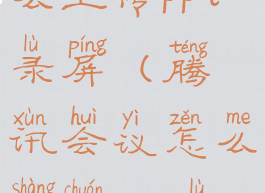 lù píng téng
录屏（腾
xùn huì yì zěn me
讯会议怎么
shàng chuán lù